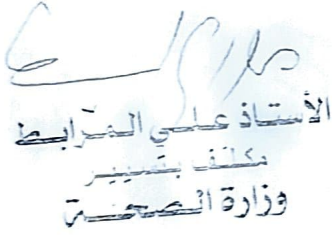 الأستاذ علي المرابط
مكلف بتسيير
وزارة الصحة